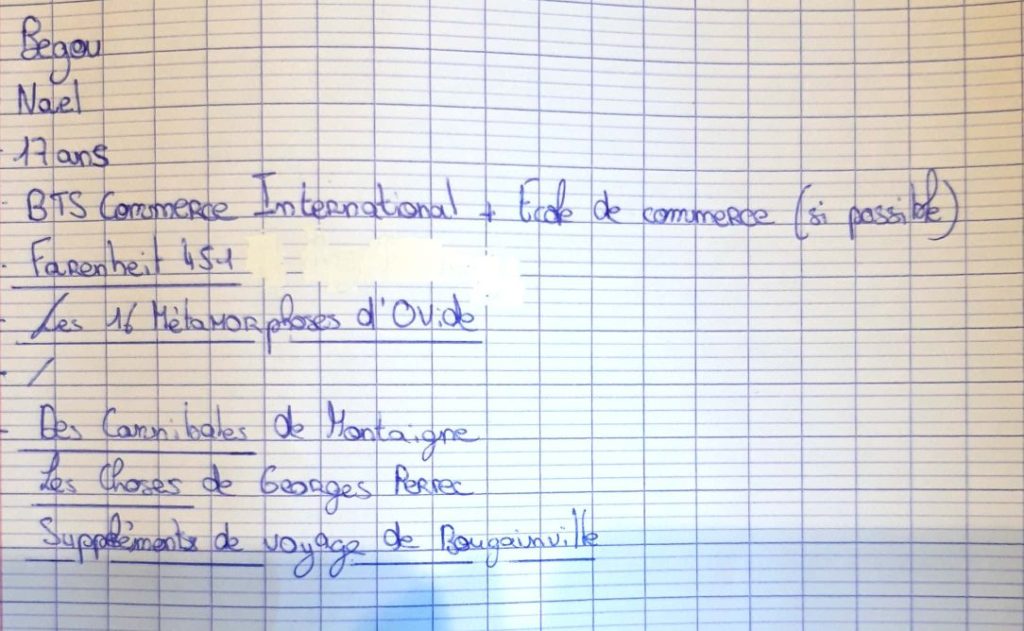 Begou
Nael
- 17 ans
- BTS Commerce International + Ecole de commerce (si possible)
- Farenheit 451
- Les 16 Métamorphoses d'Ovide
- /
- Des Cannibales de Montaigne
Les Choses de Georges Perrec
Suppléments de voyage de Bougainville